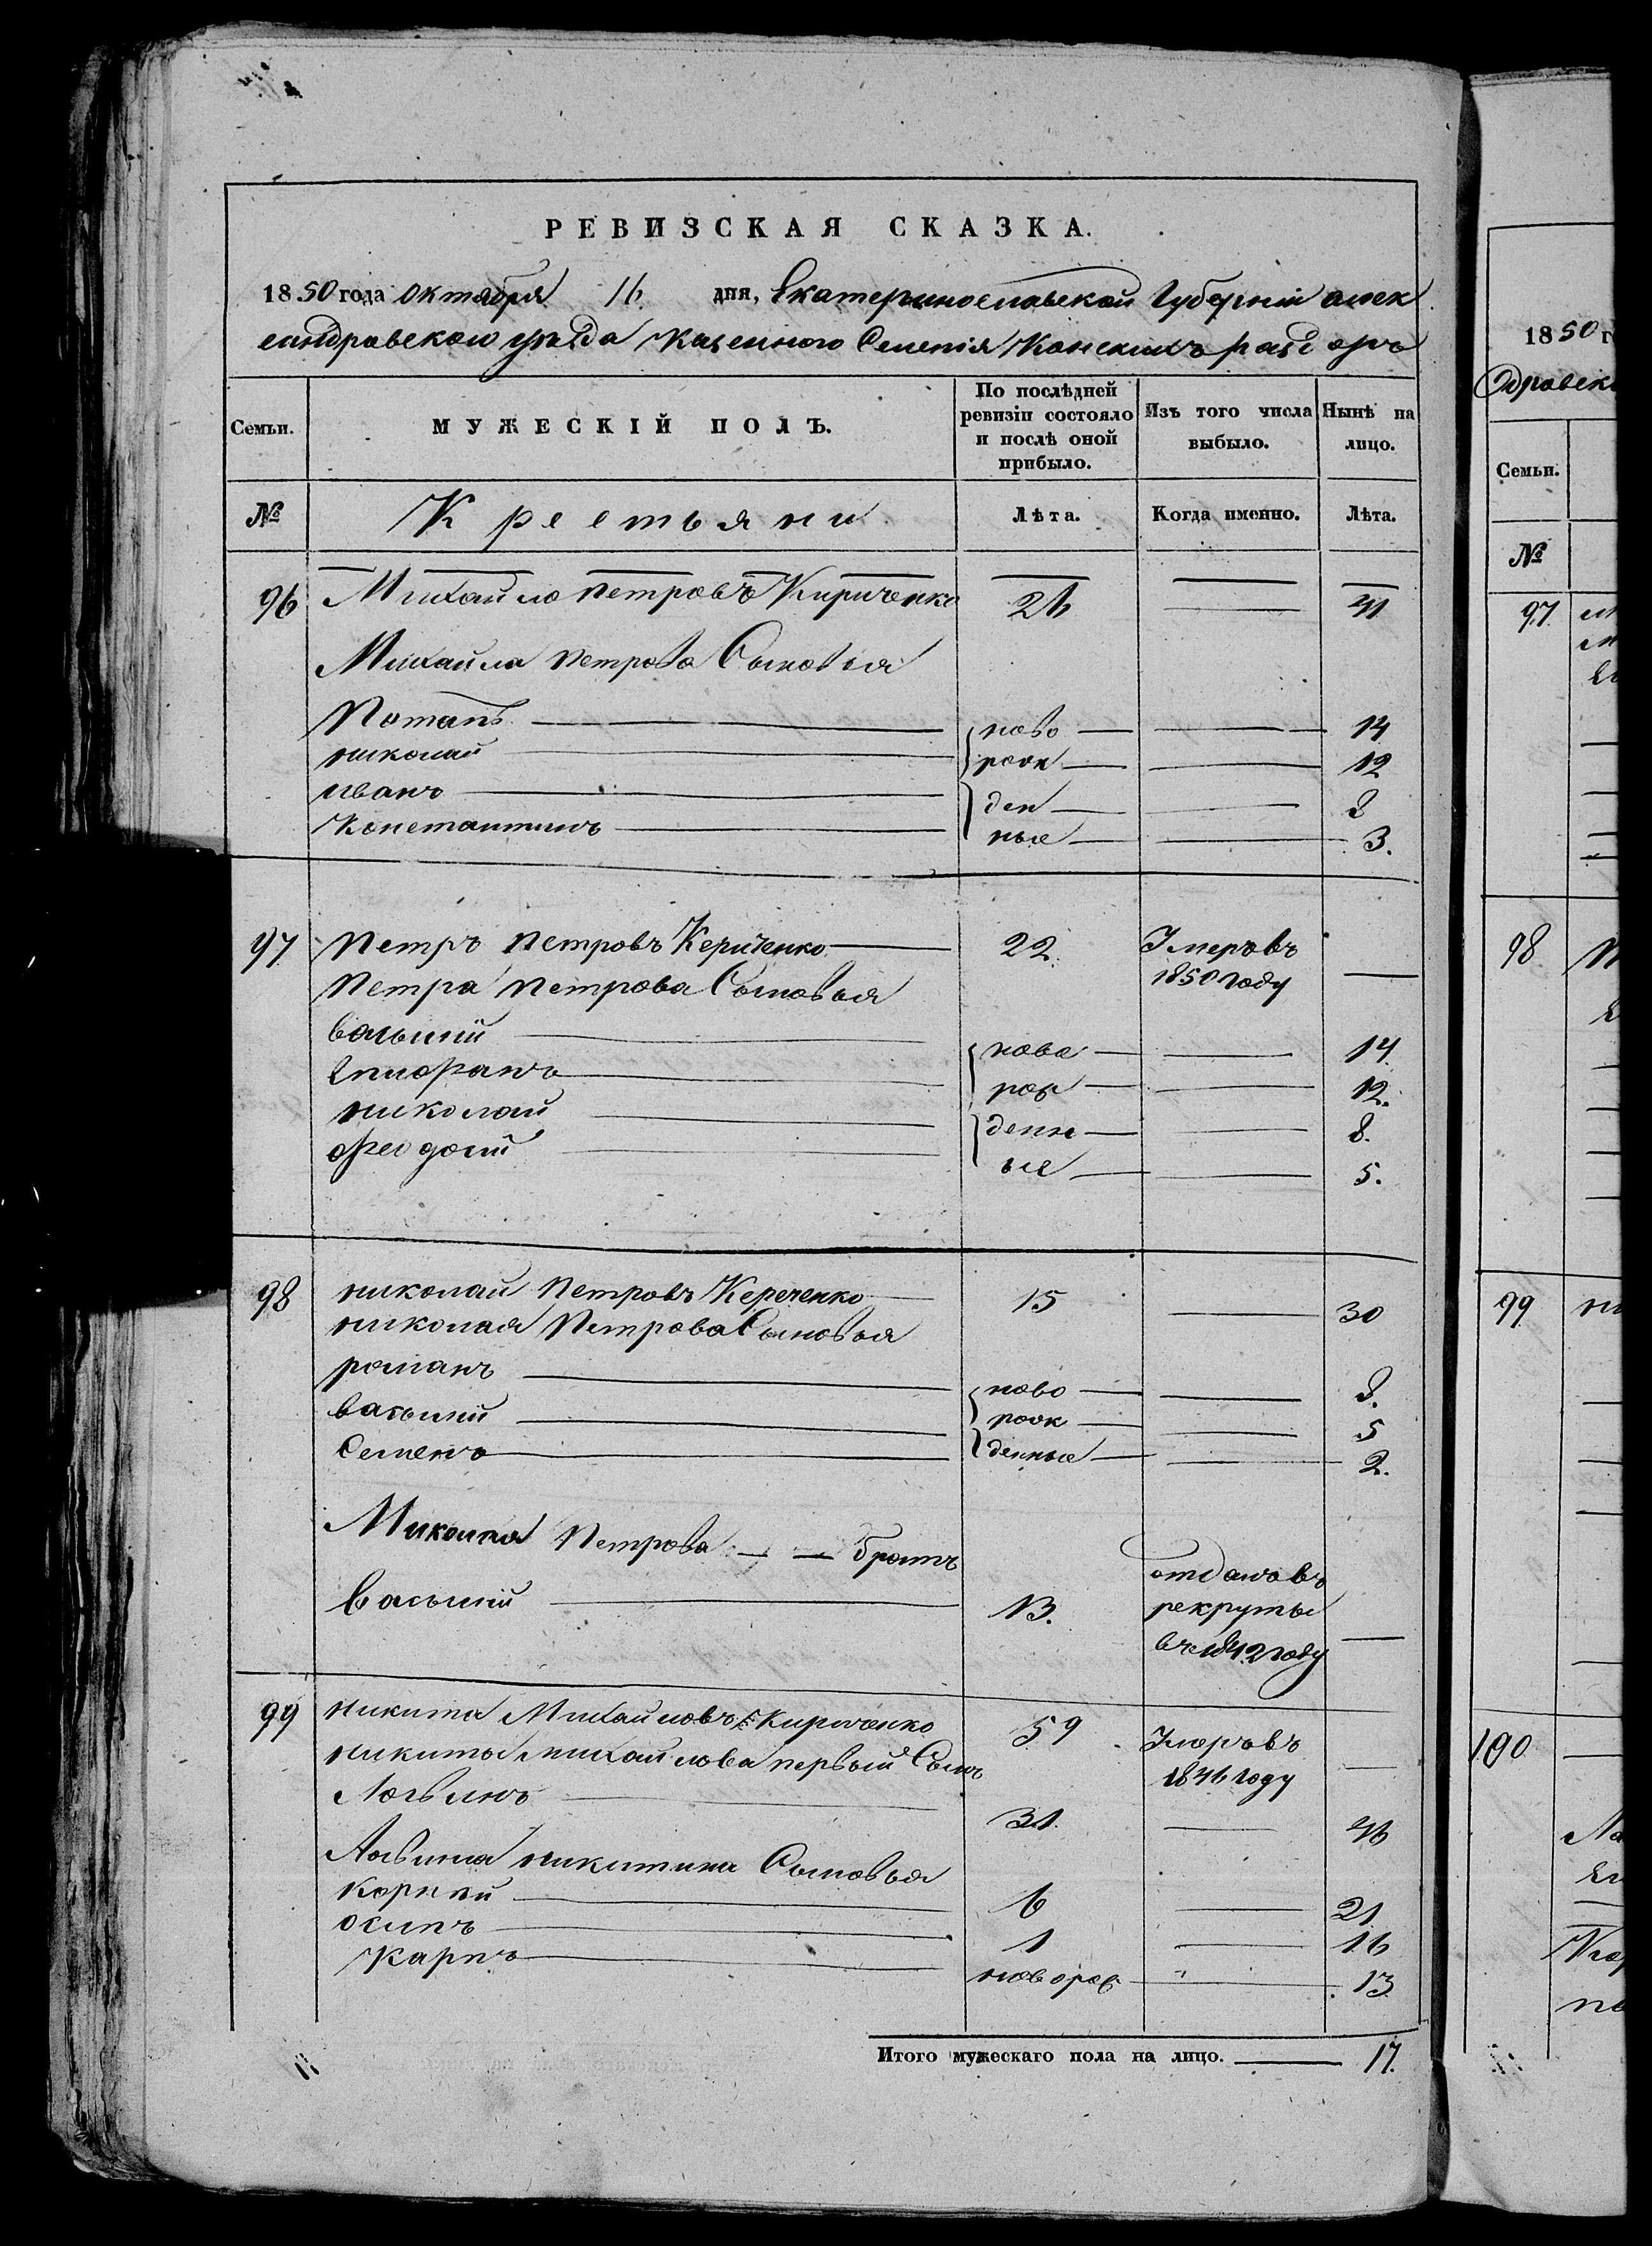 РЕВИЗСКАЯ СКАЗКА.
1850 года октября 16 дня, Екатеринославской Губерніи алек
сандравскаго уѣзда Казенного Селенія Конскихъ раздоръ
Семьи.
МУЖЕСКІЙ ПОЛЪ.
По послѣдней ревизіи состояло и послѣ оной прибыло.
Изъ того числа выбыло.
Нынѣ на лицо.
№ Крестьяни Лѣта. Когда именно. Лѣта.
96 Михайло петровъ Кириченко 26 — 41
Михайла петрова Сыновья
Потапъ — ново — — 14
николай — рож — — 12
иванъ — ден — — 8
Константинъ — ные — — 3.
97 петръ петровъ Кериченко — 22. Умеръ въ 1850 году —
петра петрова Сыновья
василий — ново — — 14.
Епифанъ — рож — — 12.
николай — денн — — 8.
феодосий — ые — — 5.
98 николай петровъ Кереченко — 15 — 30
николая Петрова Сыновья
романъ — ново — — 8.
василий — рож — — 5
Семенъ — денные — — 2.
Николая Петрова — — братъ
Василий — 13. отданъ въ рекруты въ 1842 году —
99 никита Михайловъ Кириченко 59 Умеръ въ 1846 году —
никиты михайлова первый Сынъ
Логвинъ — 31. — 46
Логвина никитина Сыновья
Корнѣй — 6 — 21
осипъ — 1 — 16
Карпъ — новорож — 13
Итого мужескаго пола на лицо. — 17.
1850 г
Семьи.
№
97
98
99
100